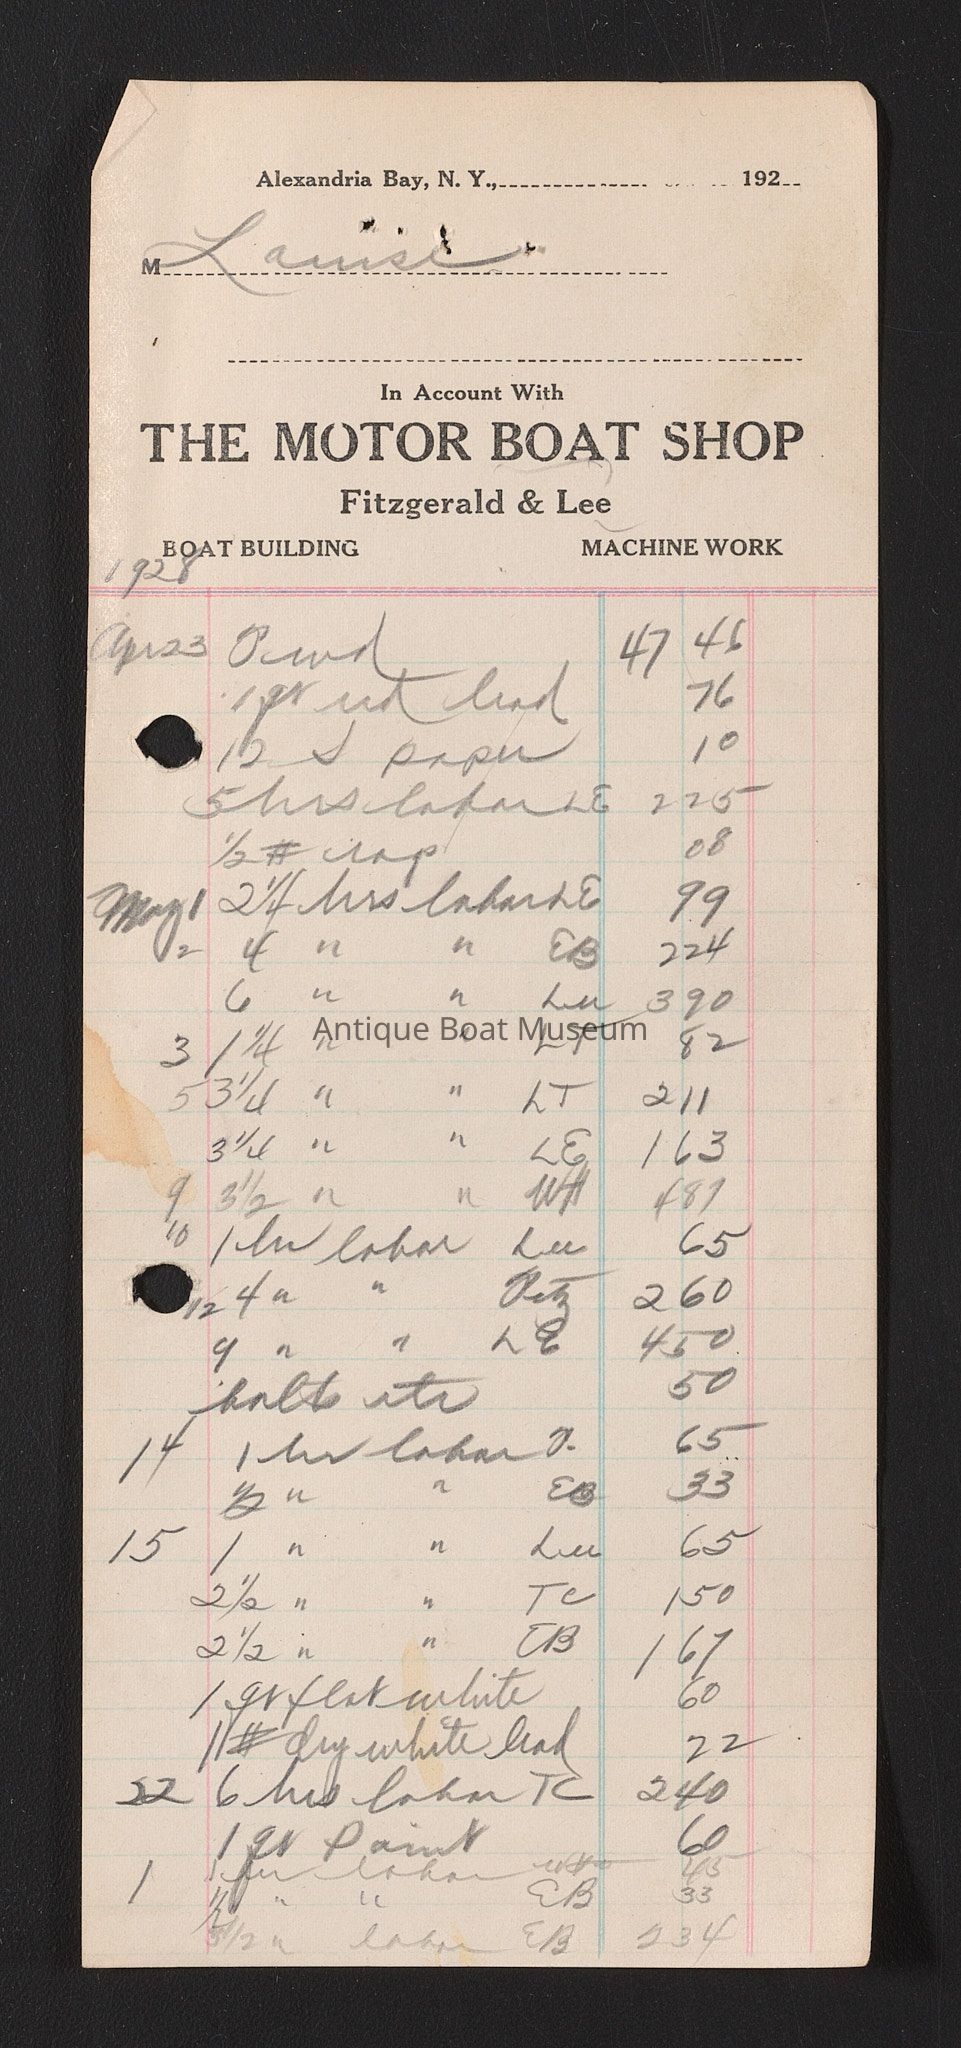 Alexandria Bay, N. Y., 192
M Louise
In Account With
THE MOTOR BOAT SHOP
Fitzgerald & Lee
BOAT BUILDING MACHINE WORK
1928
Apr 23 47 45
1 qt red lead 76
12 S paper 10
5 hrs labor LE 2 25
1/2 # 08
May 1 2 1/4 hrs labor LE 99
2 4 " " EB 2 24
6 " " Lee 3 90
Antique Boat Museum
3 1 1/4 " " LT 82
5 3 1/4 " " LT 2 11
3 1/4 " " LE 1 63
9 3 1/2 " " WH 4 87
10 1 hr labor Lee 65
12 4 " " Fitz 2 60
9 " " LE 4 50
bolts etc 50
14 1 hr labor 65
1/2 " " EB 33
15 1 " " Lee 65
2 1/2 " " TC 1 50
2 1/2 " " EB 1 67
1 qt flat white 60
1 # dry white lead 22
22 6 hrs labor TC 2 40
1 qt Paint 60
1 1 hr labor 45
1/2 " " EB 33
3 1/2 " labor EB 2 34